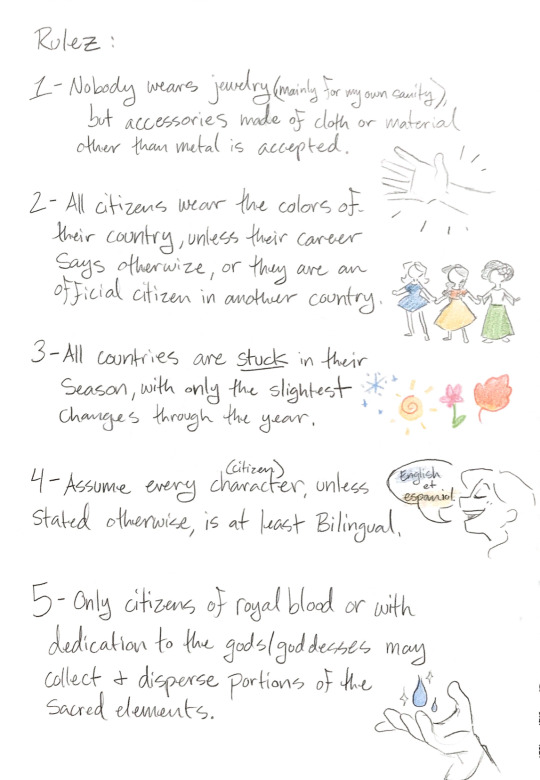 Rulez:
1- Nobody wears jewelry (mainly for my own sanity),
but accessories made of cloth or material
other than metal is accepted.
2- All citizens wear the colors of
their country, unless their career
says otherwize, or they are an
official citizen in another country.
3- All countries are stuck in their
Season, with only the slightest
changes through the year.
(citizen)
4- Assume every character, unless
stated otherwise, is at least Bilingual.
English
et
espaniol.
5- Only citizens of royal blood or with
dedication to the gods/goddesses may
collect & disperse portions of the
sacred elements.